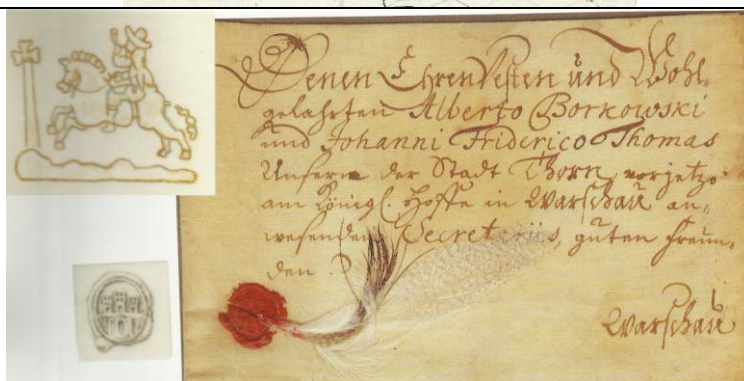 Denen EhrenVesten und Wohl-
gelahrten Alberto Borkowski
und Johanni Friderico Thomas
Unserm der Stadt Thorn, vorjetzo
am Königl. Hoffe in Warschau an-
wesenden Secretariis, guten Freun-
den.
Warschau